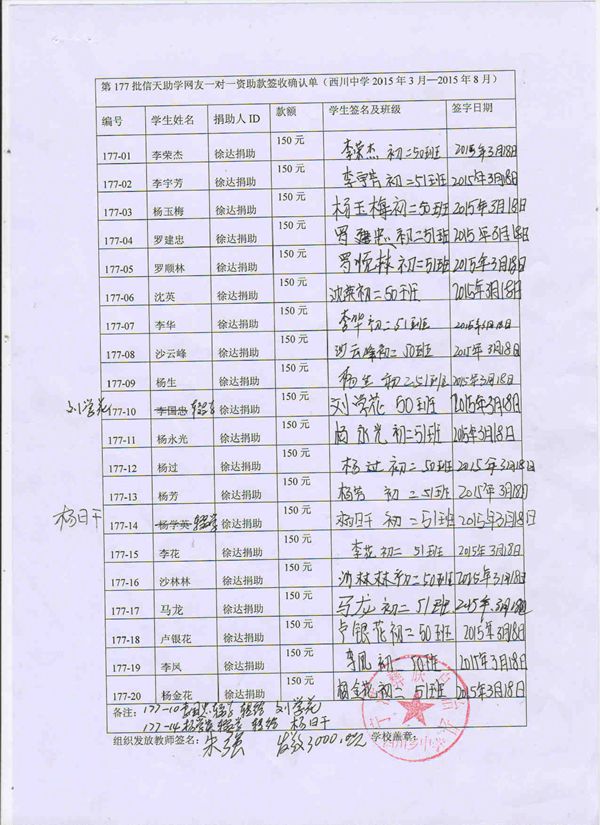 第177批信天助学网友一对一资助款签收确认单（西川中学2015年3月—2015年8月）
编号 学生姓名 捐助人ID 款额 学生签名及班级 签字日期
177-01 李荣杰 徐达捐助 150元 李荣杰 初二50班 2015年3月18日
177-02 李宇芳 徐达捐助 150元 李宇芳 初二51班 2015年3月18日
177-03 杨玉梅 徐达捐助 150元 杨玉梅 初二50班 2015年3月18日
177-04 罗建忠 徐达捐助 150元 罗建忠 初二51班 2015年3月18日
177-05 罗顺林 徐达捐助 150元 初二51班 2015年3月18日
177-06 沈英 徐达捐助 150元 初二50班 2015年3月18日
177-07 李华 徐达捐助 150元 李华 初二51班 2015年3月18日
177-08 沙云峰 徐达捐助 150元 沙云峰 初二50班 2015年3月18日
177-09 杨生 徐达捐助 150元 杨生 初二51班 2015年3月18日
刘学花 177-10 李国忠 徐达捐助 150元 刘学花 50班 2015年3月18日
177-11 杨永光 徐达捐助 150元 杨永光 初二51班 2015年3月18日
177-12 杨过 徐达捐助 150元 杨过 初二50班 2015年3月18日
177-13 杨芳 徐达捐助 150元 杨芳 初二51班 2015年3月18日
杨日干 177-14 杨学英 徐达捐助 150元 杨日干 初二51班 2015年3月18日
177-15 李花 徐达捐助 150元 李花 初二51班 2015年3月18日
177-16 沙林林 徐达捐助 150元 沙林林 初二50班 2015年3月18日
177-17 马龙 徐达捐助 150元 马龙 初二51班 2015年3月18日
177-18 卢银花 徐达捐助 150元 卢银花 初二50班 2015年3月18日
177-19 李凤 徐达捐助 150元 李凤 初二50班 2015年3月18日
177-20 杨金花 徐达捐助 150元 杨金花 初二51班 2015年3月18日
备注： 177-10 李国忠 转给 刘学花
177-14 杨学英 转给 杨日干
组织发放教师签名： 朱强 发放3000.元 学校盖章：
西川乡中学